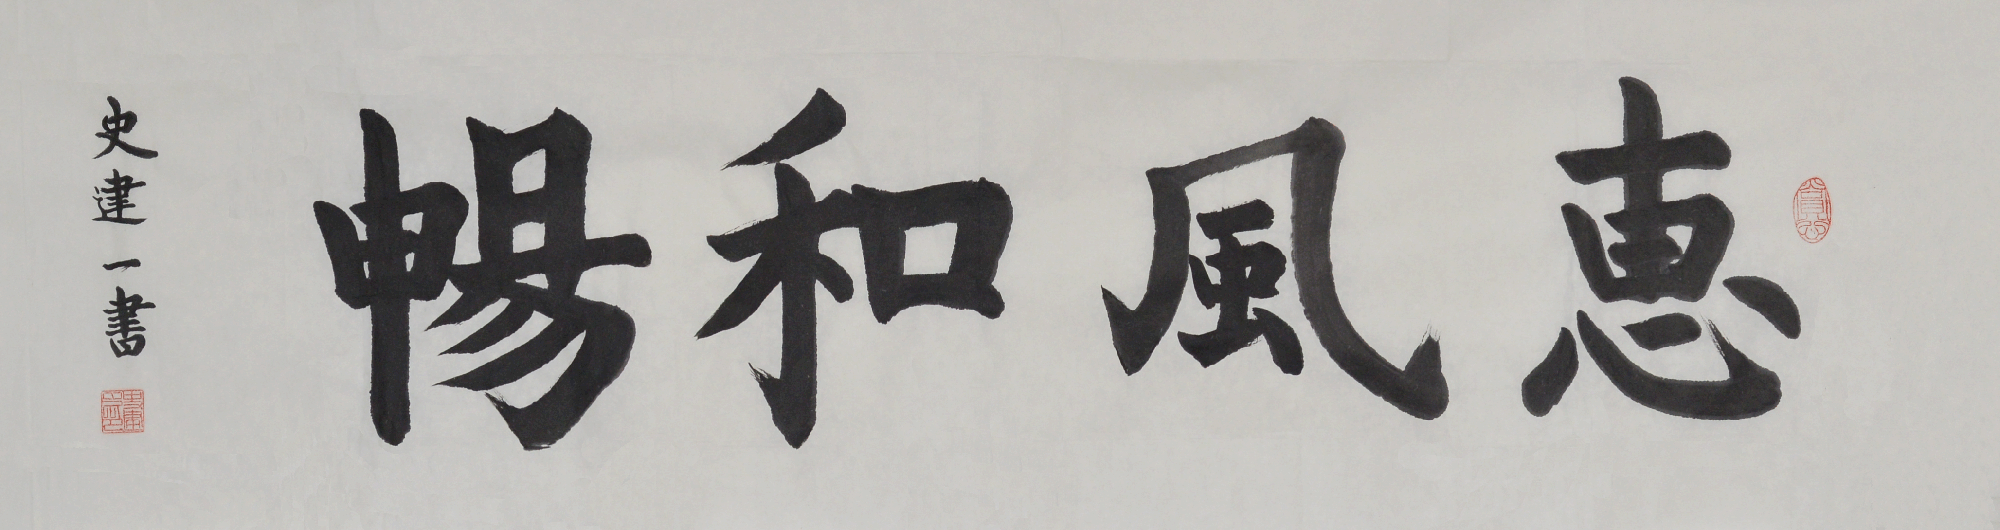 惠風和暢
史建一書